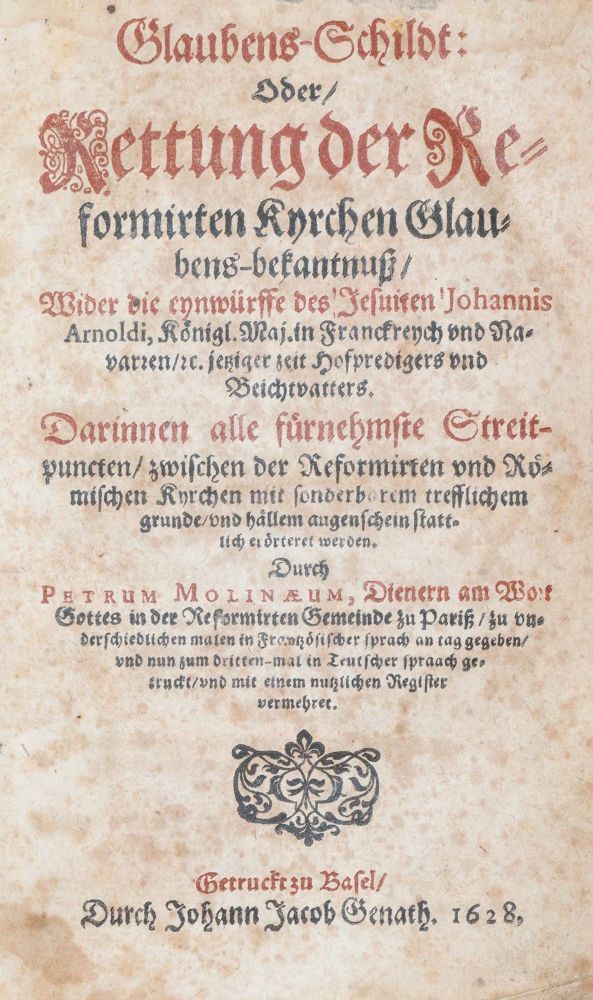 Glaubens-Schildt:
Oder/
Rettung der Re=
formirten Kyrchen Glau=
bens-bekantnuß/
Wider die eynwürffe des Jesuiten Johannis
Arnoldi, Königl. Maj. in Franckreych vnd Na=
varren/ꝛc. jetziger zeit Hofpredigers vnd
Beichtvatters.
Darinnen alle fürnehmste Streit-
puncten/zwischen der Reformirten vnd Rö=
mischen Kyrchen mit sonderbarem trefflichem
grunde/vnd hällem augenschein statt-
lich erörteret werden.
Durch
PETRUM MOLINÆUM, Dienern am Wort
Gottes in der Reformirten Gemeinde zu Pariß/zu vn=
derschiedlichen malen in Frantzösischer sprach an tag gegeben/
vnd nun zum dritten-mal in Teutscher spraach ge=
truckt/vnd mit einem nutzlichen Register
vermehret.
Getruckt zu Basel/
Durch Johann Jacob Genath. 1628.